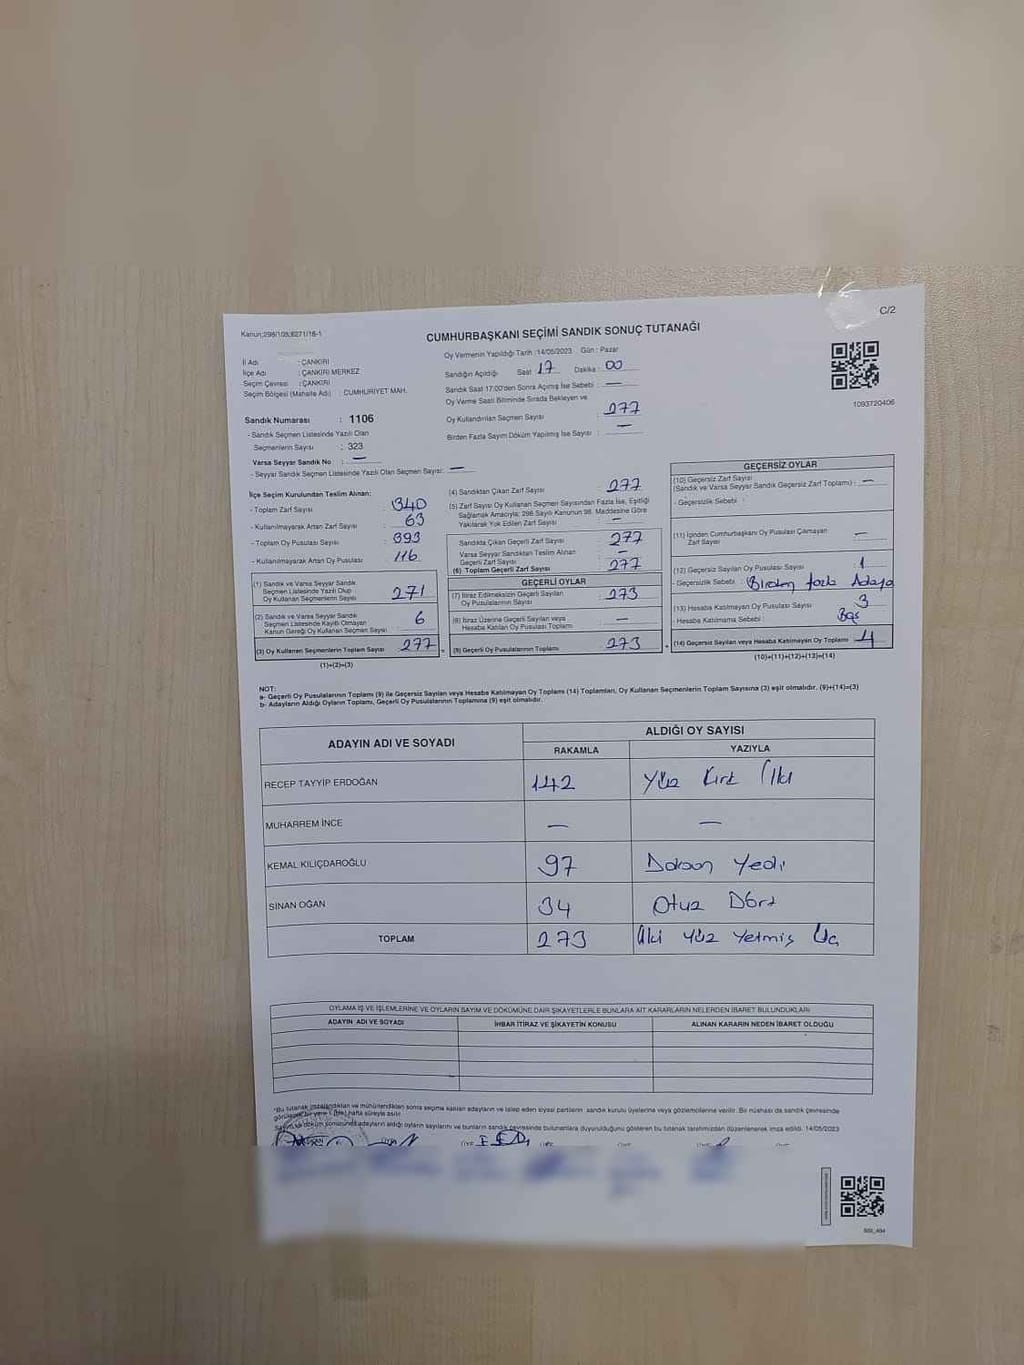 Kanun:298/105;6271/16-1
C/2
CUMHURBAŞKANI SEÇİMİ SANDIK SONUÇ TUTANAĞI
İl Adı : ÇANKIRI
İlçe Adı : ÇANKIRI MERKEZ
Seçim Çevresi : ÇANKIRI
Seçim Bölgesi (Mahalle Adı) : CUMHURİYET MAH.
Oy Vermenin Yapıldığı Tarih :14/05/2023 Gün : Pazar
Sandığın Açıldığı : Saat 17 Dakika : 00
Sandık Saat 17:00'den Sonra Açılmış İse Sebebi : —
Oy Verme Saati Bitiminde Sırada Bekleyen ve
Oy Kullandırılan Seçmen Sayısı : 277
Birden Fazla Sayım Döküm Yapılmış İse Sayısı : —
1093720406
Sandık Numarası : 1106
- Sandık Seçmen Listesinde Yazılı Olan
Seçmenlerin Sayısı : 323
Varsa Seyyar Sandık No : —
- Seyyar Sandık Seçmen Listesinde Yazılı Olan Seçmen Sayısı: —
İlçe Seçim Kurulundan Teslim Alınan:
- Toplam Zarf Sayısı : 340
- Kullanılmayarak Artan Zarf Sayısı : 63
- Toplam Oy Pusulası Sayısı : 393
- Kullanılmayarak Artan Oy Pusulası : 116
(1) Sandık ve Varsa Seyyar Sandık
Seçmen Listesinde Yazılı Olup
Oy Kullanan Seçmenlerin Sayısı : 271
(2) Sandık ve Varsa Seyyar Sandık
Seçmen Listesinde Kayıtlı Olmayan
Kanun Gereği Oy Kullanan Seçmen Sayısı : 6
(3) Oy Kullanan Seçmenlerin Toplam Sayısı : 277
(1)+(2)=(3)
(4) Sandıktan Çıkan Zarf Sayısı : 277
(5) Zarf Sayısı Oy Kullanan Seçmen Sayısından Fazla İse, Eşitliği
Sağlamak Amacıyla; 298 Sayılı Kanunun 98. Maddesine Göre
Yakılarak Yok Edilen Zarf Sayısı : —
Sandıkta Çıkan Geçerli Zarf Sayısı : 277
Varsa Seyyar Sandıktan Teslim Alınan
Geçerli Zarf Sayısı : —
(6) Toplam Geçerli Zarf Sayısı : 277
GEÇERLİ OYLAR
(7) İtiraz Edilmeksizin Geçerli Sayılan
Oy Pusulalarının Sayısı : 273
(8) İtiraz Üzerine Geçerli Sayılan veya
Hesaba Katılan Oy Pusulası Toplamı : —
(9) Geçerli Oy Pusulalarının Toplamı : 273
GEÇERSİZ OYLAR
(10) Geçersiz Zarf Sayısı
(Sandık ve Varsa Seyyar Sandık Geçersiz Zarf Toplamı) : —
- Geçersizlik Sebebi :
(11) İçinden Cumhurbaşkanı Oy Pusulası Çıkmayan
Zarf Sayısı : —
(12) Geçersiz Sayılan Oy Pusulası Sayısı : 1
- Geçersizlik Sebebi : Birden fazla Adaya
(13) Hesaba Katılmayan Oy Pusulası Sayısı : 3
- Hesaba Katılmama Sebebi : Boş
(14) Geçersiz Sayılan veya Hesaba Katılmayan Oy Toplamı : 4
(10)+(11)+(12)+(13)=(14)
NOT:
a- Geçerli Oy Pusulalarının Toplamı (9) ile Geçersiz Sayılan veya Hesaba Katılmayan Oy Toplamı (14) Toplamları, Oy Kullanan Seçmenlerin Toplam Sayısına (3) eşit olmalıdır. (9)+(14)=(3)
b- Adayların Aldığı Oyların Toplamı, Geçerli Oy Pusulalarının Toplamına (9) eşit olmalıdır.
ADAYIN ADI VE SOYADI
ALDIĞI OY SAYISI
RAKAMLA YAZIYLA
RECEP TAYYİP ERDOĞAN 142 Yüz Kırk İki
MUHARREM İNCE — —
KEMAL KILIÇDAROĞLU 97 Doksan Yedi
SİNAN OĞAN 34 Otuz Dört
TOPLAM 273 İki Yüz Yetmiş Üç
OYLAMA İŞ VE İŞLEMLERİNE VE OYLARIN SAYIM VE DÖKÜMÜNE DAİR ŞİKAYETLERLE BUNLARA AİT KARARLARIN NELERDEN İBARET BULUNDUKLARI
ADAYIN ADI VE SOYADI İHBAR İTİRAZ VE ŞİKAYETİN KONUSU ALINAN KARARIN NEDEN İBARET OLDUĞU
*Bu tutanak imzalandıktan ve mühürlendikten sonra seçime katılan adayların ve talep eden siyasi partilerin sandık kurulu üyelerine veya gözlemcilerine verilir. Bir nüshası da sandık çevresinde
görülecek bir yere 1 (bir) hafta süreyle asılır.
Sayım ve döküm sonucunda adayların aldığı oyların sayılarını ve bunların sandık çevresinde bulunanlara duyurulduğunu gösteren bu tutanak tarafımızdan düzenlenerek imza edildi. 14/05/2023